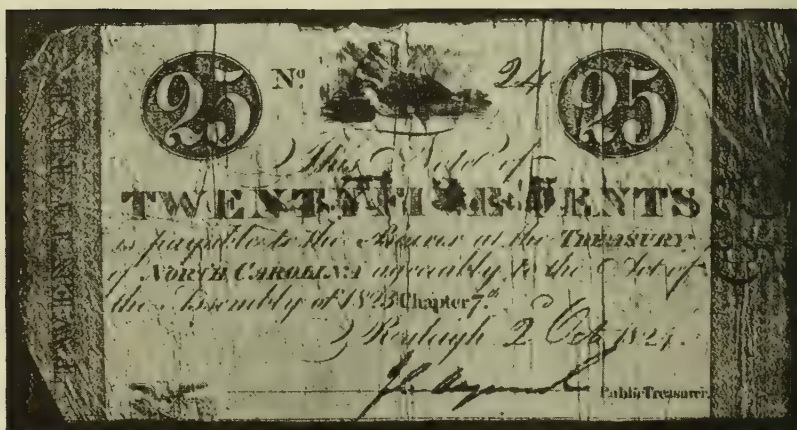 TWENTY FIVE
25 Nº 24 25
This Note of
TWENTY FIVE CENTS
is payable to the Bearer at the TREASURY
of NORTH CAROLINA agreeably to the Act of
the Assembly of 1823 Chapter 7.th
Raleigh 2 Oct 1824.
Public Treasurer.